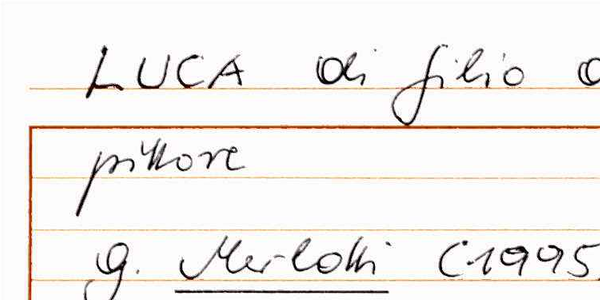 LUCA di filio
pittore
g. Merlotti (1995